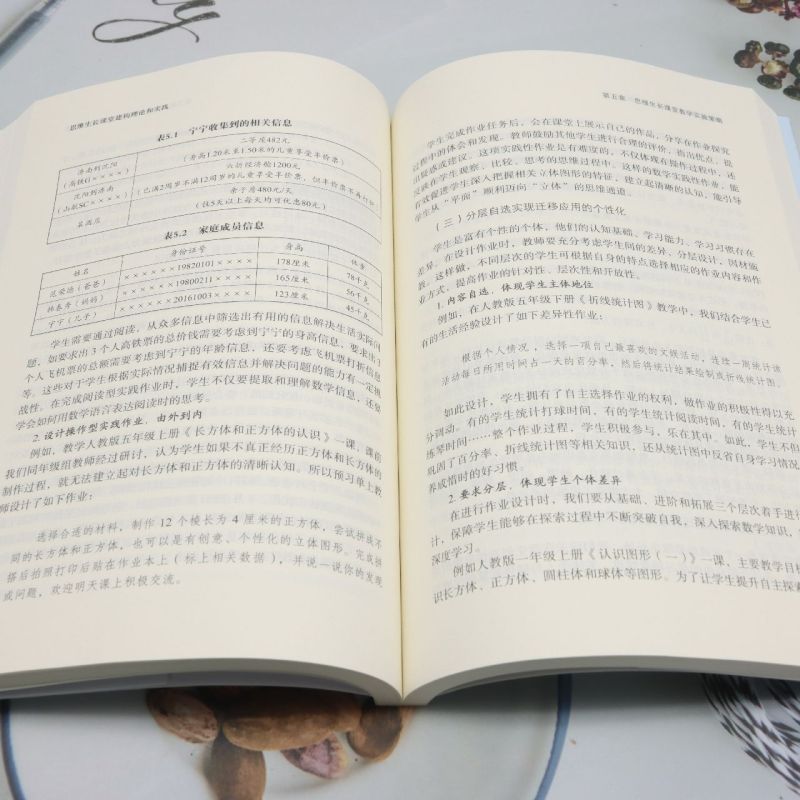 思维生长课堂建构理论和实践
表5.1 宁宁收集到的相关信息
济南到沈阳
(高铁G××××)
二等座482元
(身高1.20米至1.50米的儿童享受半价票)
沈阳到济南
(山航SC××××)
六折经济舱1200元
(已满2周岁不满12周岁的儿童享受半价票,但半价票不再打折)
某酒店
亲子房480元/天
(住5天以上每天均可优惠80元)
表5.2 家庭成员信息
姓名 身份证号 身高 体重
范荣德(爸爸) ××××××19820101×××× 178厘米 78千克
韩春秀(妈妈) ××××××19800211×××× 165厘米 56千克
宁宁(儿子) ××××××20161003×××× 123厘米 45千克
学生需要通过阅读,从众多信息中筛选出有用的信息解决生活实际问
题,如要求出3个人高铁票的总价钱需要考虑到宁宁的身高信息,要求出3
个人飞机票的总额需要考虑到宁宁的年龄信息,还要考虑飞机票打折信息
等。这些对于学生根据实际情况捕捉有效信息并解决问题的能力有一定挑
战性。在完成阅读型实践作业时,学生不仅要提取和理解数学信息,还要
学会如何用数学语言表达阅读时的思考。
2. 设计操作型实践作业,由外到内
例如,教学人教版五年级上册《长方体和正方体的认识》一课,课前
我们同年级组教师经过研讨,认为学生如果不真正经历正方体和长方体的
制作过程,就无法建立起对长方体和正方体的清晰认知。所以预习单上教
师设计了如下作业:
选择合适的材料,制作12个棱长为4厘米的正方体,尝试拼成不
同的长方体和正方体,也可以是有创意、个性化的立体图形。完成拼
搭后拍照打印后贴在作业本上(标上相关数据),并说一说你的发现
或问题,欢迎明天课上积极交流。
第五章 思维生长课堂教学实施策略
学生完成作业任务后,会在课堂上展示自己的作品,分享在作业探究
过程中的体会和发现。教师鼓励其他学生进行合理的评价,指出优点,提
出疑惑或建议。这项实践性作业是有难度的,不仅体现在操作过程中,还
反映在学生观察、比较、思考的思维过程中。这样的数学实践性作业,能
有效促进学生深入把握相关立体图形的特征,建立起清晰的认知,能引导
学生从“平面”顺利迈向“立体”的思维通道。
(三)分层自选实现迁移应用的个性化
学生是富有个性的个体,他们的认知基础、学习能力、学习习惯存在
差异。在设计作业时,教师要充分考虑学生间的差异,分层设计,因材施
教。这样做,不同层次的学生可根据自身的特点选择相应的作业内容和作
业方式,提高作业的针对性、层次性和开放性。
1. 内容自选,体现学生主体地位
例如,在人教版五年级下册《折线统计图》教学中,我们结合学生已
有的生活经验设计了如下差异性作业:
根据个人情况,选择一项自己最喜欢的文娱活动,连续一周统计该
活动每日所用时间占一天的百分率,然后将统计结果绘制成折线统计图。
如此设计,学生拥有了自主选择作业的权利,做作业的积极性得以充
分调动。有的学生统计打球时间,有的学生统计阅读时间,有的学生统计
练琴时间……整个作业过程,学生积极参与,乐在其中。如此,学生不但
巩固了百分率、折线统计图等相关知识,还从统计图中反省自身学习情况,
养成惜时的好习惯。
2. 要求分层,体现学生个体差异
在进行作业设计时,我们要从基础、进阶和拓展三个层次着手进行
计,保障学生能够在探索过程中不断突破自我,深入探索数学知识,
深度学习。
例如人教版一年级上册《认识图形(一)》一课,主要教学目标
识长方体、正方体、圆柱体和球体等图形。为了让学生提升自主探索